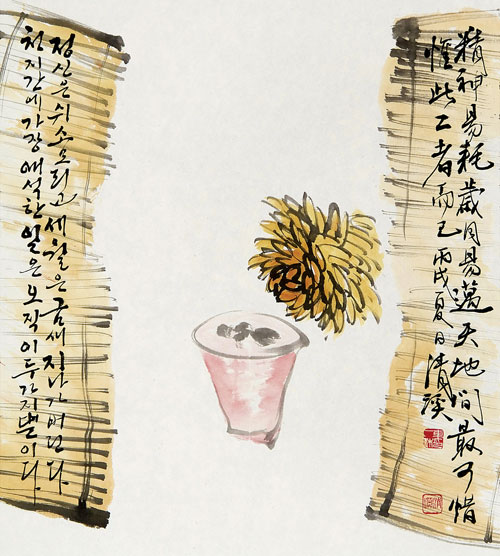 精神易耗歲月易邁天地間最可惜
惟此二者而已 丙戌夏日 清溪
정신은 쉬 소모되고 세월은 금새 지나가 버린다
천지간에 가장 애석한 일은 오직 이 두가지 뿐이다